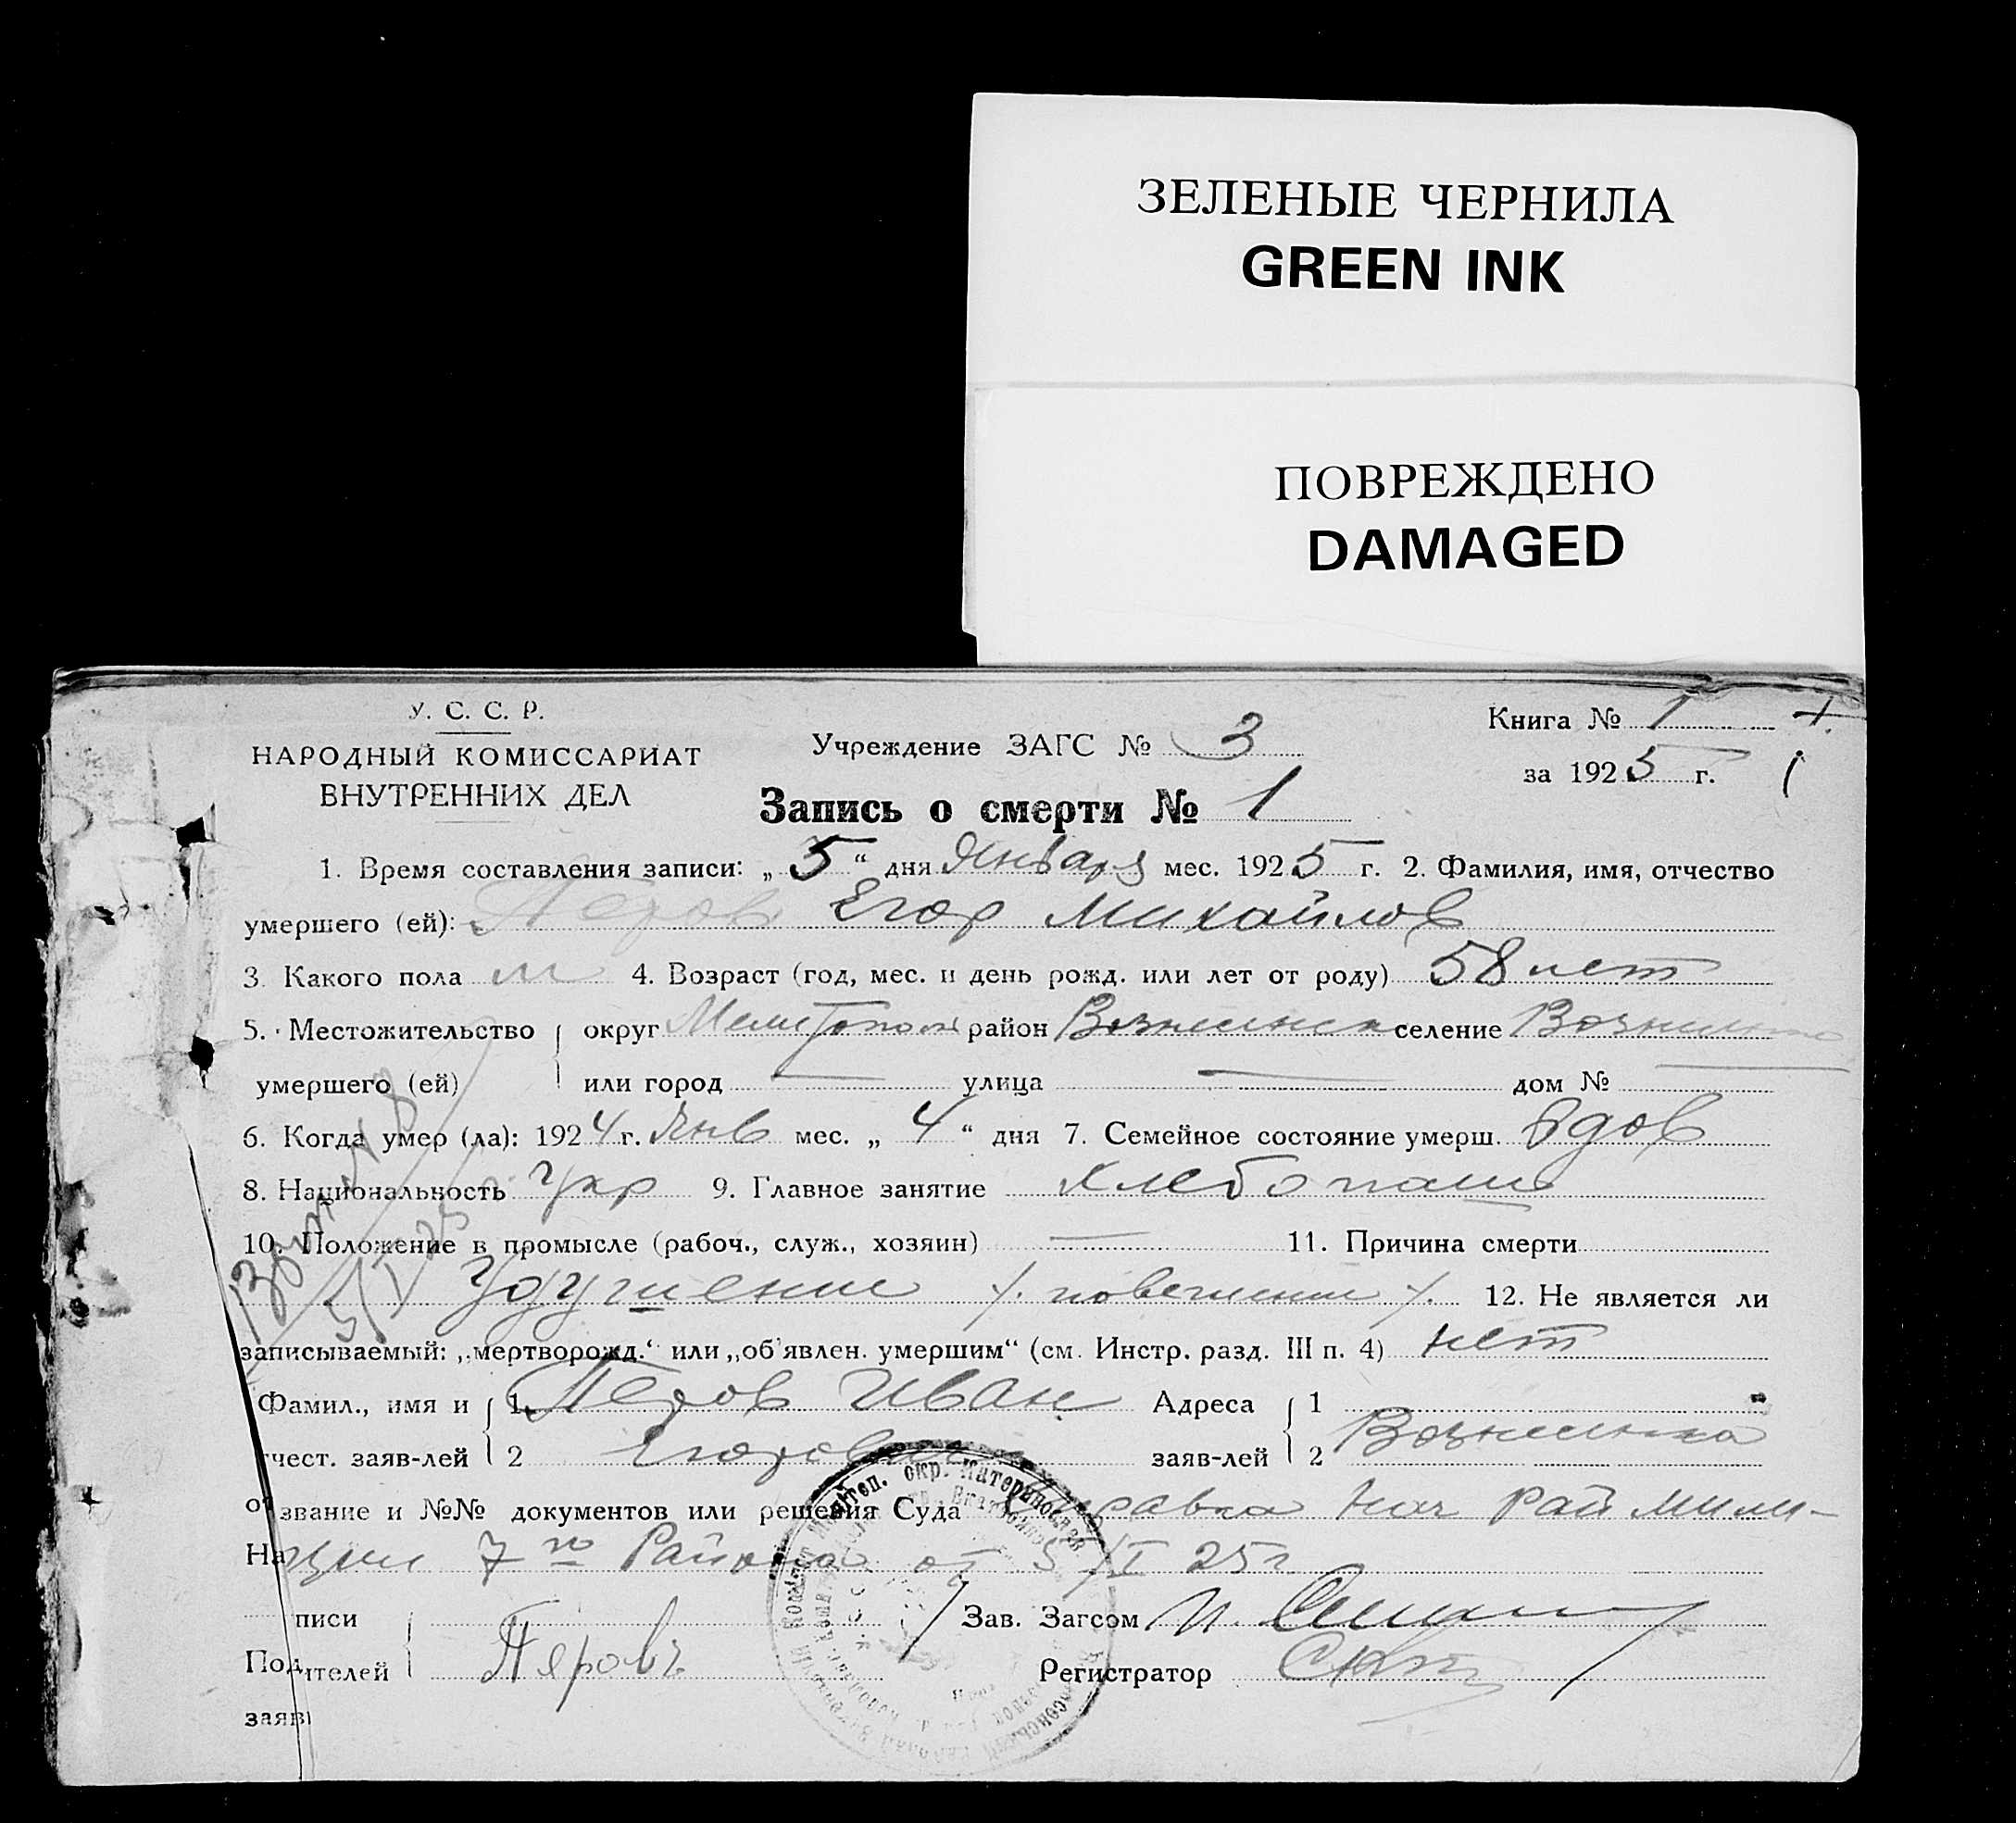 ЗЕЛЕНЫЕ ЧЕРНИЛА
GREEN INK
ПОВРЕЖДЕНО
DAMAGED
У. С. С. Р.
НАРОДНЫЙ КОМИССАРИАТ
ВНУТРЕННИХ ДЕЛ
Учреждение ЗАГС № 3
Книга № 1
за 1925 г. 1
Запись о смерти № 1
1. Время составления записи: „5“ дня Января мес. 1925 г. 2. Фамилия, имя, отчество
умершего (ей): Перов Егор Михайлов
3. Какого пола м 4. Возраст (год, мес. и день рожд. или лет от роду) 58 лет
5. Местожительство округ Мелитополь район Вознесенск селение Вознесенка
умершего (ей) или город — улица — дом № —
6. Когда умер (ла): 1924 г. Янв мес. „4“ дня 7. Семейное состояние умерш. вдов
8. Национальность Укр 9. Главное занятие хлебопаш
10. Положение в промысле (рабоч., служ., хозяин) — 11. Причина смерти
Удушение /. повешение /. 12. Не является ли
записываемый: „мертворожд.“ или „об'явлен. умершим“ (см. Инстр. разд. III п. 4) нет
Фамил., имя и 1 Перов Иван Адреса 1
чест. заяв-лей 2 Егорович заяв-лей 2 Вознесенка
от звание и №№ документов или решения Суда Справка Нач Рай мили-
На ции 7го Района от 5/I 25 г
писи Зав. Загсом И.
Под ителей Перовъ Регистратор
заяв